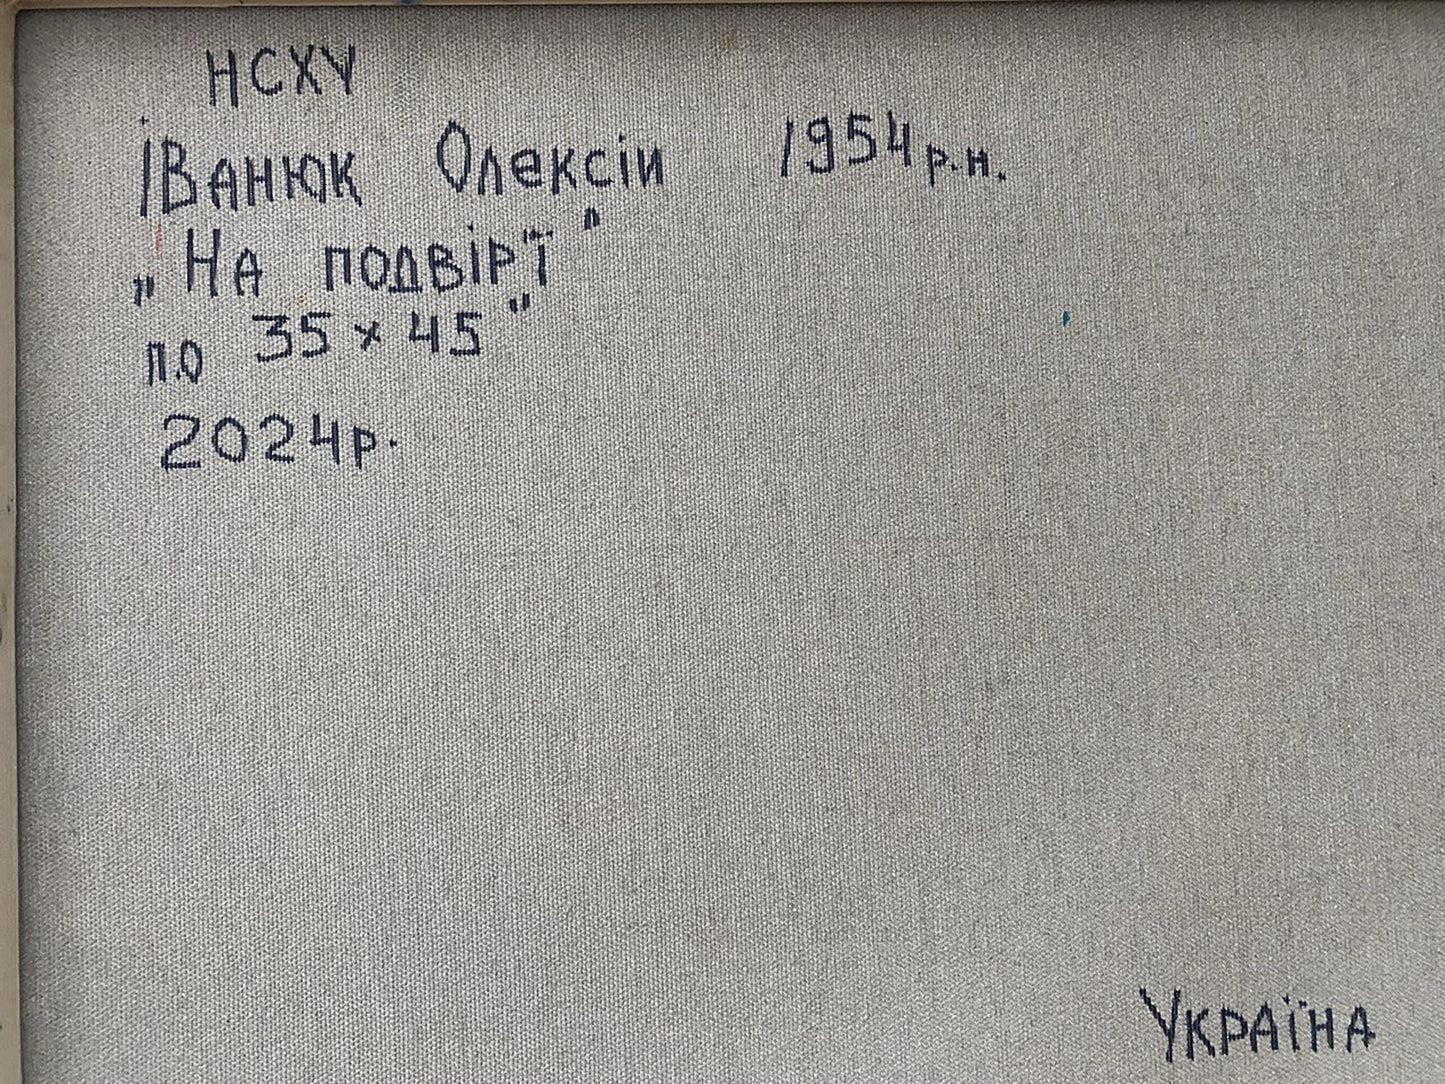 НСХУ
Іванюк Олексіи 1954 р.н.
„На подвір'ї"
п.о 35 х 45"
2024р.
Україна